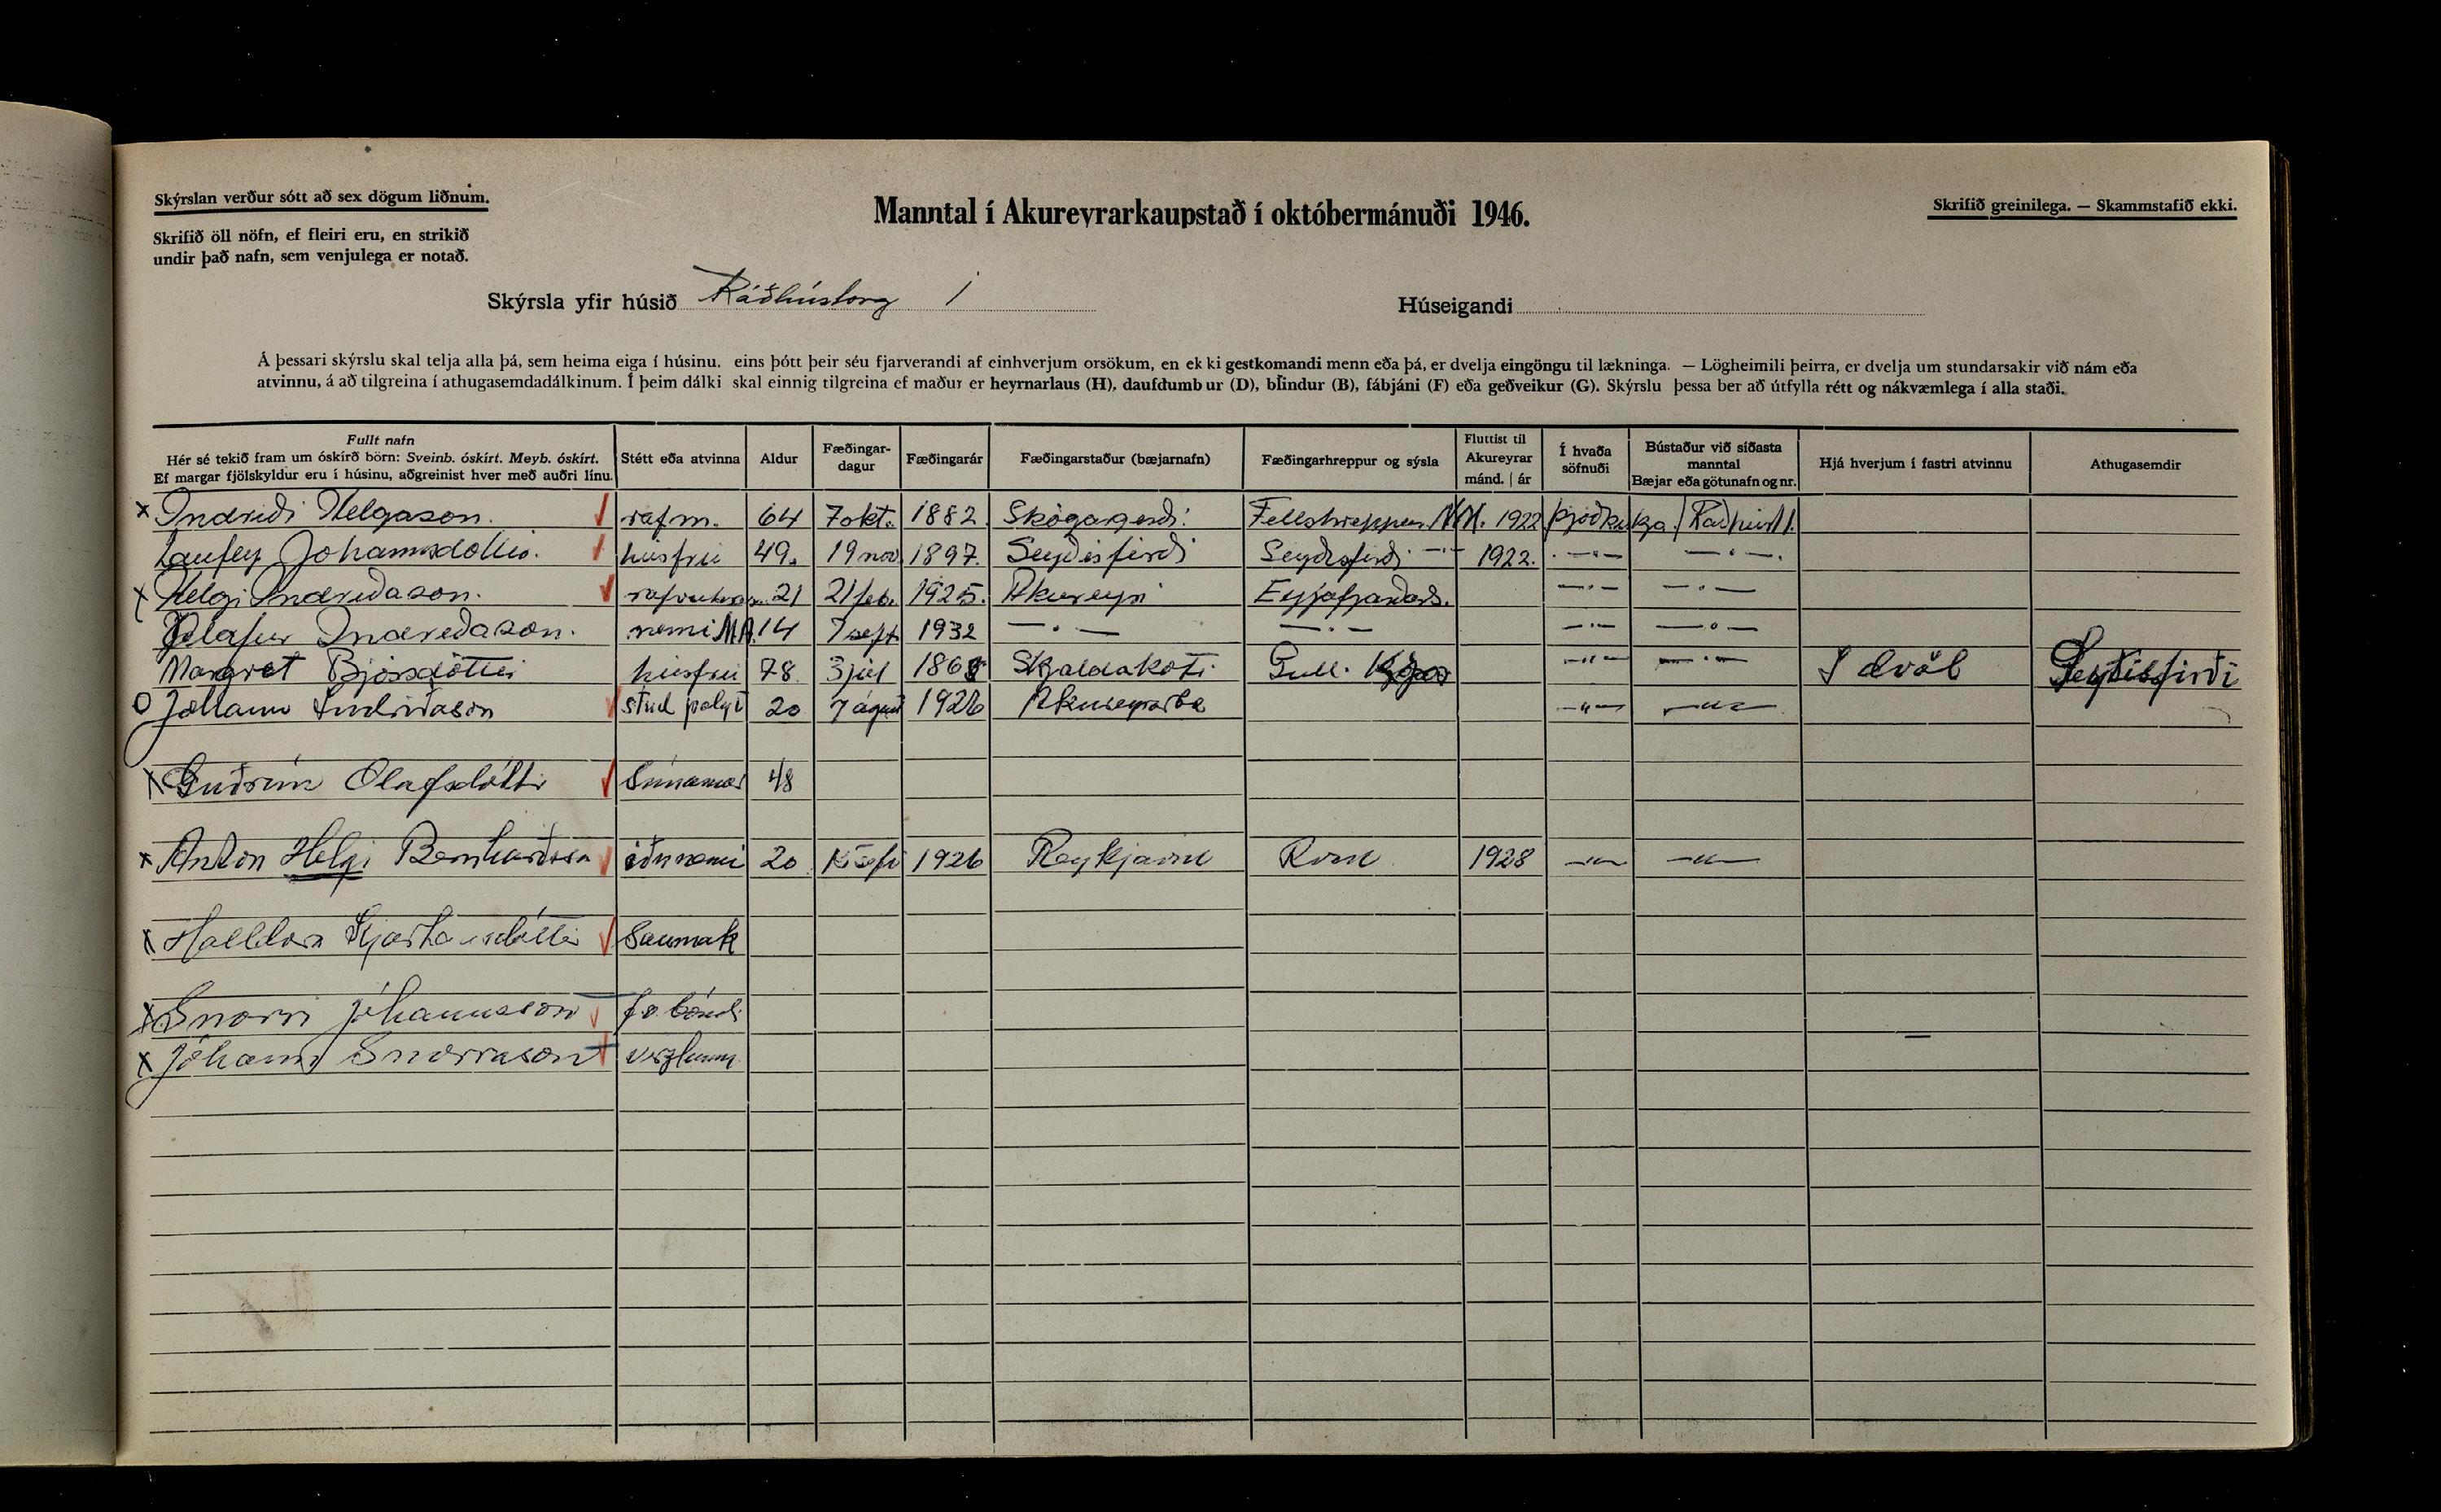 Skýrslan verður sótt að sex dögum liðnum.
Skrifið öll nöfn, ef fleiri eru, en strikið
undir það nafn, sem venjulega er notað.
Manntal í Akureyrarkaupstað í októbermánuði 1946.
Skrifið greinilega. — Skammstafið ekki.
Skýrsla yfir húsið Ráðhústorg 1
Húseigandi
Á þessari skýrslu skal telja alla þá, sem heima eiga í húsinu, eins þótt þeir séu fjarverandi af einhverjum orsökum, en ekki gestkomandi menn eða þá, er dvelja eingöngu til lækninga. — Lögheimili þeirra, er dvelja um stundarsakir við nám eða
atvinnu, á að tilgreina í athugasemdadálkinum. Í þeim dálki skal einnig tilgreina ef maður er heyrnarlaus (H), daufdumbur (D), blindur (B), fábjáni (F) eða geðveikur (G). Skýrslu þessa ber að útfylla rétt og nákvæmlega í alla staði.
Fullt nafn
Hér sé tekið fram um óskírð börn: Sveinb. óskírt. Meyb. óskírt.
Ef margar fjölskyldur eru í húsinu, aðgreinist hver með auðri línu.
Stétt eða atvinna
Aldur
Fæðingar-
dagur
Fæðingarár
Fæðingarstaður (bæjarnafn)
Fæðingarhreppur og sýsla
Fluttist til
Akureyrar
mánd. | ár
Í hvaða
söfnuði
Bústaður við síðasta
manntal
Bæjar eða götunafn og nr.
Hjá hverjum í fastri atvinnu
Athugasemdir
x Indriði Helgason. rafm. 64 7 okt. 1882 Skógargerði. Fellahreppur N.M. 1922 þjóðkirkja. Ráðhúst 1.
Laufey Jóhannsdóttir. húsfrú 49. 19 nov 1897. Seyðisfirði Seyðisfirði —"— 1922. —"— —"—
x Helgi Indriðason. 21 21 feb. 1925. Akureyri Eyjafjarðars. —"— —"—
Ólafur Indriðason. nemi M.A. 14 7 sept 1932 —"— —"— —"— —"—
Margret Björnsdóttir húsfrú 78 3 júl 1868 Skjaldakoti Gull. —"— —"— Í dvöl Seyðisfirði
O Jóhann Indriðason stud polyt 20 7 ágúst 1926 Akureyrarbæ —"— —"—
x Guðrún Ólafsdóttir 48
x Anton Helgi Bernharðsson iðnnemi 20 1926 Reykjavík Rvík 1928 —"— —"—
x Halldóra Kjartansdóttir Saumak
x Snorri Jóhannsson fv. bóndi
x Jóhann Snorrason verzlunm.